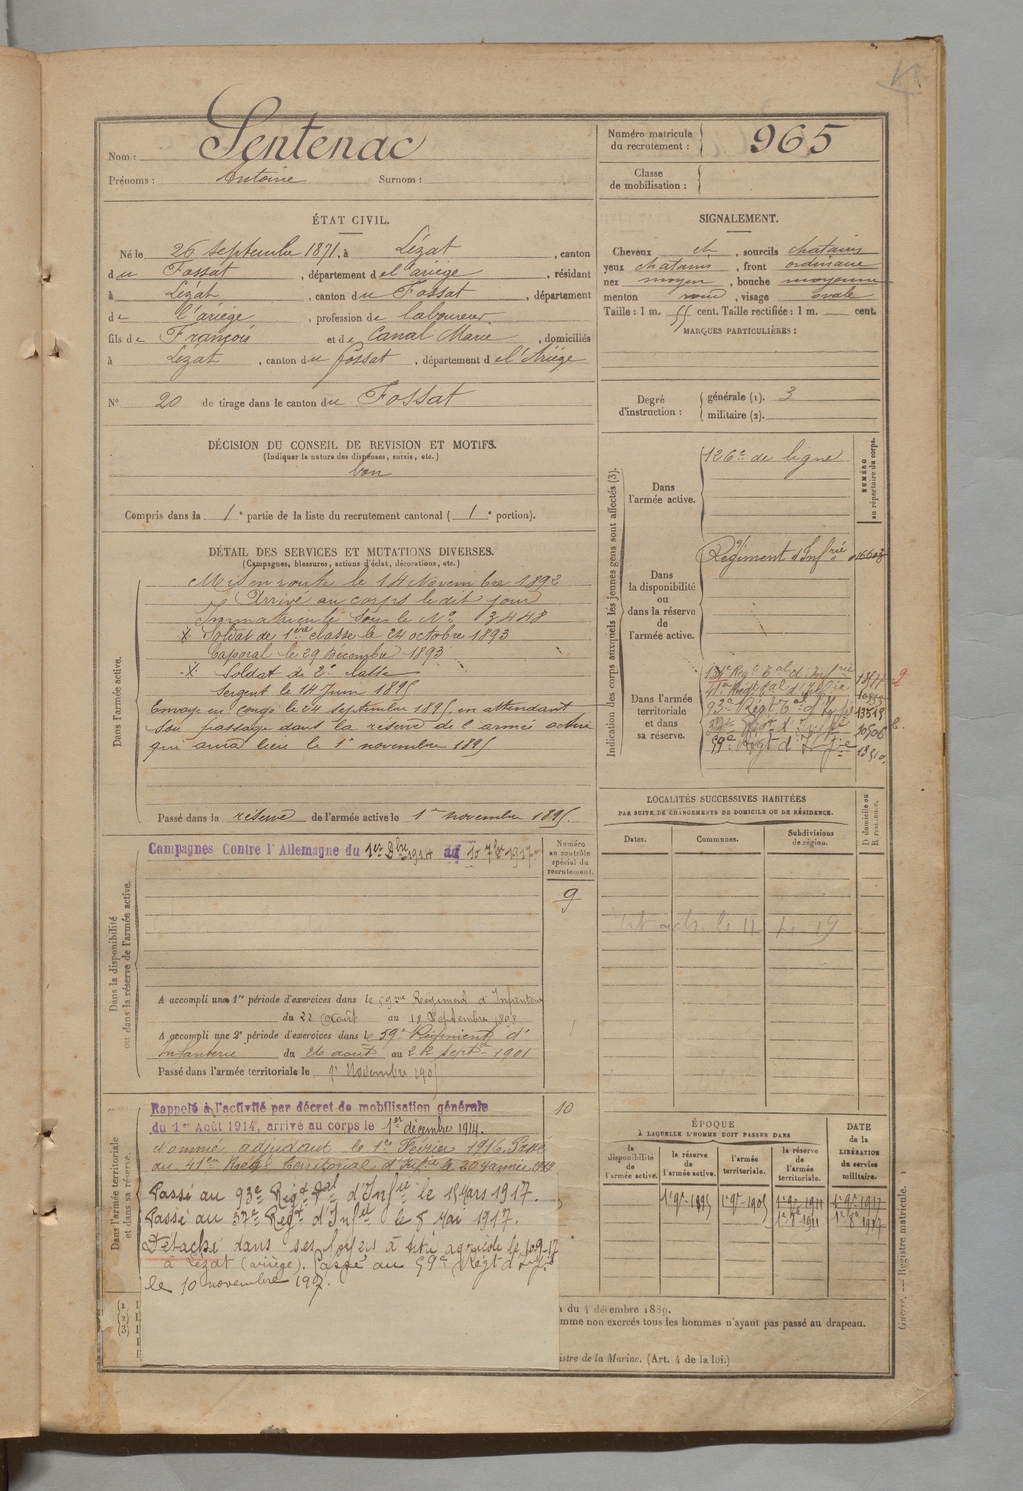 Nom : Sentenac
Prénoms : Antoine Surnom :
Numéro matricule du recrutement : 965
Classe de mobilisation :
ÉTAT CIVIL.
Né le 26 septembre 1871, à Lézat, canton
du Fossat, département de l'ariège, résidant
à Lézat, canton du Fossat, département
de l'ariège, profession de laboureur
fils de François et de Canal Marie, domiciliés
à Lézat, canton du fossat, département de l'Ariège
N° 20 de tirage dans le canton du Fossat
SIGNALEMENT.
Cheveux ch, sourcils chatains
yeux chatains, front ordinaire
nez moyen, bouche moyenne
menton rond, visage ovale
Taille : 1 m. 55 cent. Taille rectifiée : 1 m. cent.
MARQUES PARTICULIÈRES :
Degré d'instruction : générale (1). 3
militaire (2).
DÉCISION DU CONSEIL DE REVISION ET MOTIFS.
(Indiquer la nature des dispenses, sursis, etc.)
bon
Compris dans la 1e partie de la liste du recrutement cantonal (1e portion).
DÉTAIL DES SERVICES ET MUTATIONS DIVERSES.
(Campagnes, blessures, actions d'éclat, décorations, etc.)
Dans l'armée active.
Mis en route le 14 Novembre 1892
Arrivé au corps le dit jour
Immatriculé sous le No 3448
X Soldat de 1ère classe le 24 octobre 1893
Caporal le 29 Décembre 1893
X Soldat de 2e classe
Sergent le 14 Juin 1895
Envoyé en congé le 24 septembre 1895 en attendant
son passage dans la réserve de l'armée active
qui aura lieu le 1er novembre 1895
Passé dans la réserve de l'armée active le 1er novembre 1895.
Indication des corps auxquels les jeunes gens sont affectés (3).
NUMÉRO au répertoire du corps.
Dans l'armée active.
126e de ligne
Dans la disponibilité ou dans la réserve de l'armée active.
Régiment d'Infrie
Dans l'armée territoriale et dans sa réserve.
134e Regt Tal d'Infrie
41e Regt Tal d'Infrie
93e Régt Tal d'Infie
37e Régt d'Infie
59e Régt d'Infie
LOCALITÉS SUCCESSIVES HABITÉES
PAR SUITE DE CHANGEMENTS DE DOMICILE OU DE RÉSIDENCE.
Dates. Communes. Subdivisions de région. D domicile ou R résidence.
Dans la disponibilité ou dans la réserve de l'armée active.
Campagnes Contre l'Allemagne du 1er Xbre 1914 au 10 7bre 1917
Numéro au contrôle spécial du recrutement.
9
A accompli une 1re période d'exercices dans le 59me Regiment d'Infanterie
du 22 Août au 18 Septembre 1898
A accompli une 2e période d'exercices dans le 59e Régiment d'
Infanterie du 26 août au 22 septe 1901
Passé dans l'armée territoriale le 1r Novembre 1905
Dans l'armée territoriale et dans sa réserve.
Rappelé à l'activité par décret de mobilisation générale
du 1er Août 1914, arrivé au corps le 1er décembre 1914.
10
Nommé adjudant le 1er Février 1916. Passé
au 41em Regt territorial d'Infrie le 20 Janvier 1917
Passé au 93e Régt Tal d'Infie le 15 Mars 1917.
Passé au 37e Régt d'Infie le 8 Mai 1917.
Détaché dans ses foyers à titre agricole le 10-9-17
à Lézat (ariège). Passé au 59e Régt d'Infie
le 10 novembre 1917.
ÉPOQUE
À LAQUELLE L'HOMME DOIT PASSER DANS
la disponibilité de l'armée active. la réserve de l'armée active. l'armée territoriale. la réserve de l'armée territoriale.
DATE de la LIBÉRATION du service militaire.
1r 9re 1895 1r 9re 1905 1r 9re 1911 1r 9re 1917
1r 8e 1911 1r 8e 1917
(1)
(2)
(3)
du 4 décembre 1889.
mme non exercés tous les hommes n'ayant pas passé au drapeau.
istre de la Marine. (Art. 4 de la loi.)
Guerre. — Registre matricule.